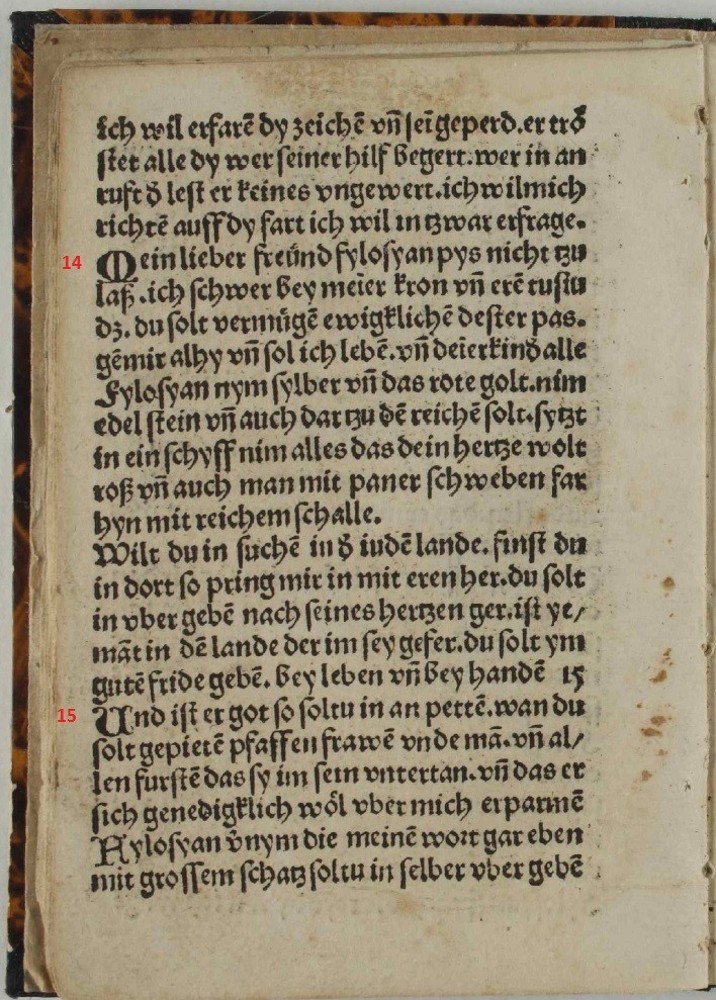 ich wil erfarē dy zeichē vñ seī geperd. er trö
stet alle dy wer seiner hilf begert. wer in an
ruft d̕ lest er keines vngewert. ich wil mich
richtē auff dy fart ich wil in tzwar erfrage.
14 Mein lieber freünd fylosyan pys nicht tzu
laß. ich schwer bey meier kron vñ erē tustu
dz. du solt vermügē ewigklichē dester pas.
gē mir alhy vñ sol ich lebē. vñ deier kind̕ alle
Fylosyan nym sylber vñ das rote golt. nim
edel stein vñ auch dar tzu dē reichē solt. sytzt
in ein schyff nim alles das dein hertze wolt
roß vñ auch man mit paner schweben far
hyn mit reichem schalle.
Wilt du in suchē in d̕ iudē lande. finst du
in dort so pring mir in mit eren her. du solt
in vber gebē nach seines hertzen ger. ist ye/
māt in dē lande der im sey gefer. du solt ym
gutē fride gebē. bey leben vñ bey handē 15
15 Und ist er got so soltu in an pettē. wan du
solt gepietē pfaffen frawē vnde mā. vñ al/
len furstē das sy im sein vntertan. vñ das er
sich genedigklich wöl vber mich erparmē
Fylosyan v̕nym die meinē wort gar eben
mit grossem schatz soltu in selber vber gebē